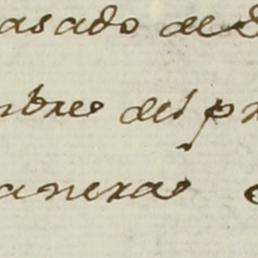 asado de
mbre del p
anera